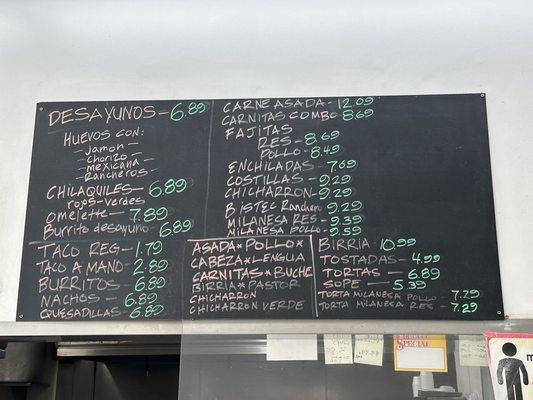 DESAYUNOS - 6.89
HUEVOS CON:
- Jamon -
- Chorizo -
- mexicana -
- Rancheros -
CHILAQUILES - 6.89
rojos-verdes
Omelette - 7.89
Burrito desayuno - 6.89
TACO REG - 1.79
TACO A MANO - 2.89
BURRITOS - 6.89
NACHOS - 6.89
QUESADILLAS - 6.89
CARNE ASADA - 12.09
CARNITAS COMBO 8.69
FAJITAS
RES - 8.69
POLLO - 8.49
ENCHILADAS - 7.69
COSTILLAS - 9.29
CHICHARRON - 9.29
BISTEC Ranchero 9.29
MILANESA RES - 9.39
MILANESA POLLO - 9.59
ASADA * POLLO *
CABEZA * LENGUA
CARNITAS * BUCHE
BIRRIA * PASTOR
CHICHARRON
CHICHARRON VERDE
BIRRIA - 10.99
TOSTADAS - 4.99
TORTAS - 6.89
SOPE - 5.39
TORTA MILANESA POLLO - 7.29
TORTA MILANESA RES - 7.29
SPECIAL